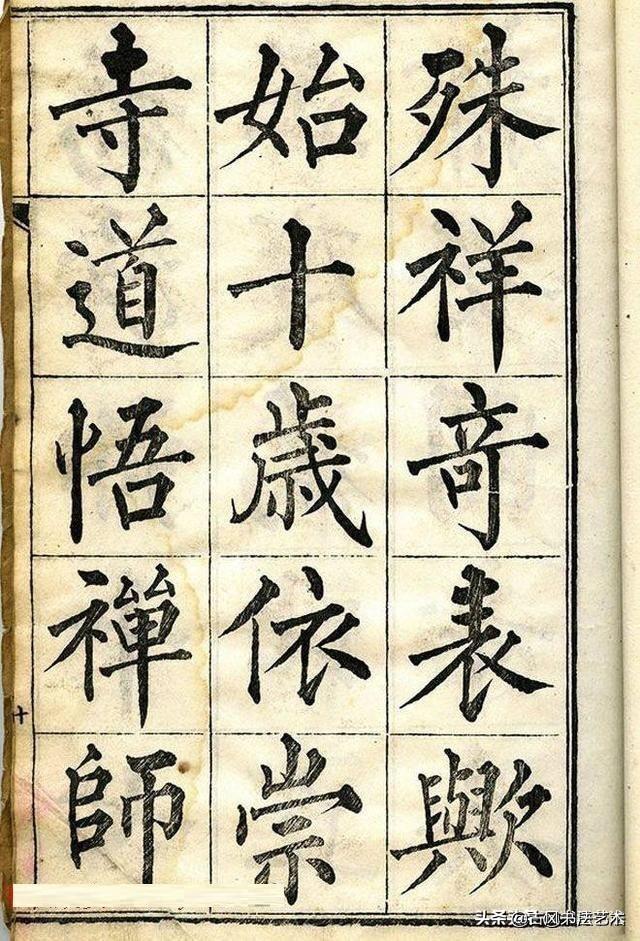 殊祥奇表歟
始十歲依崇
寺道悟禪師
十
头条@古风书法艺术